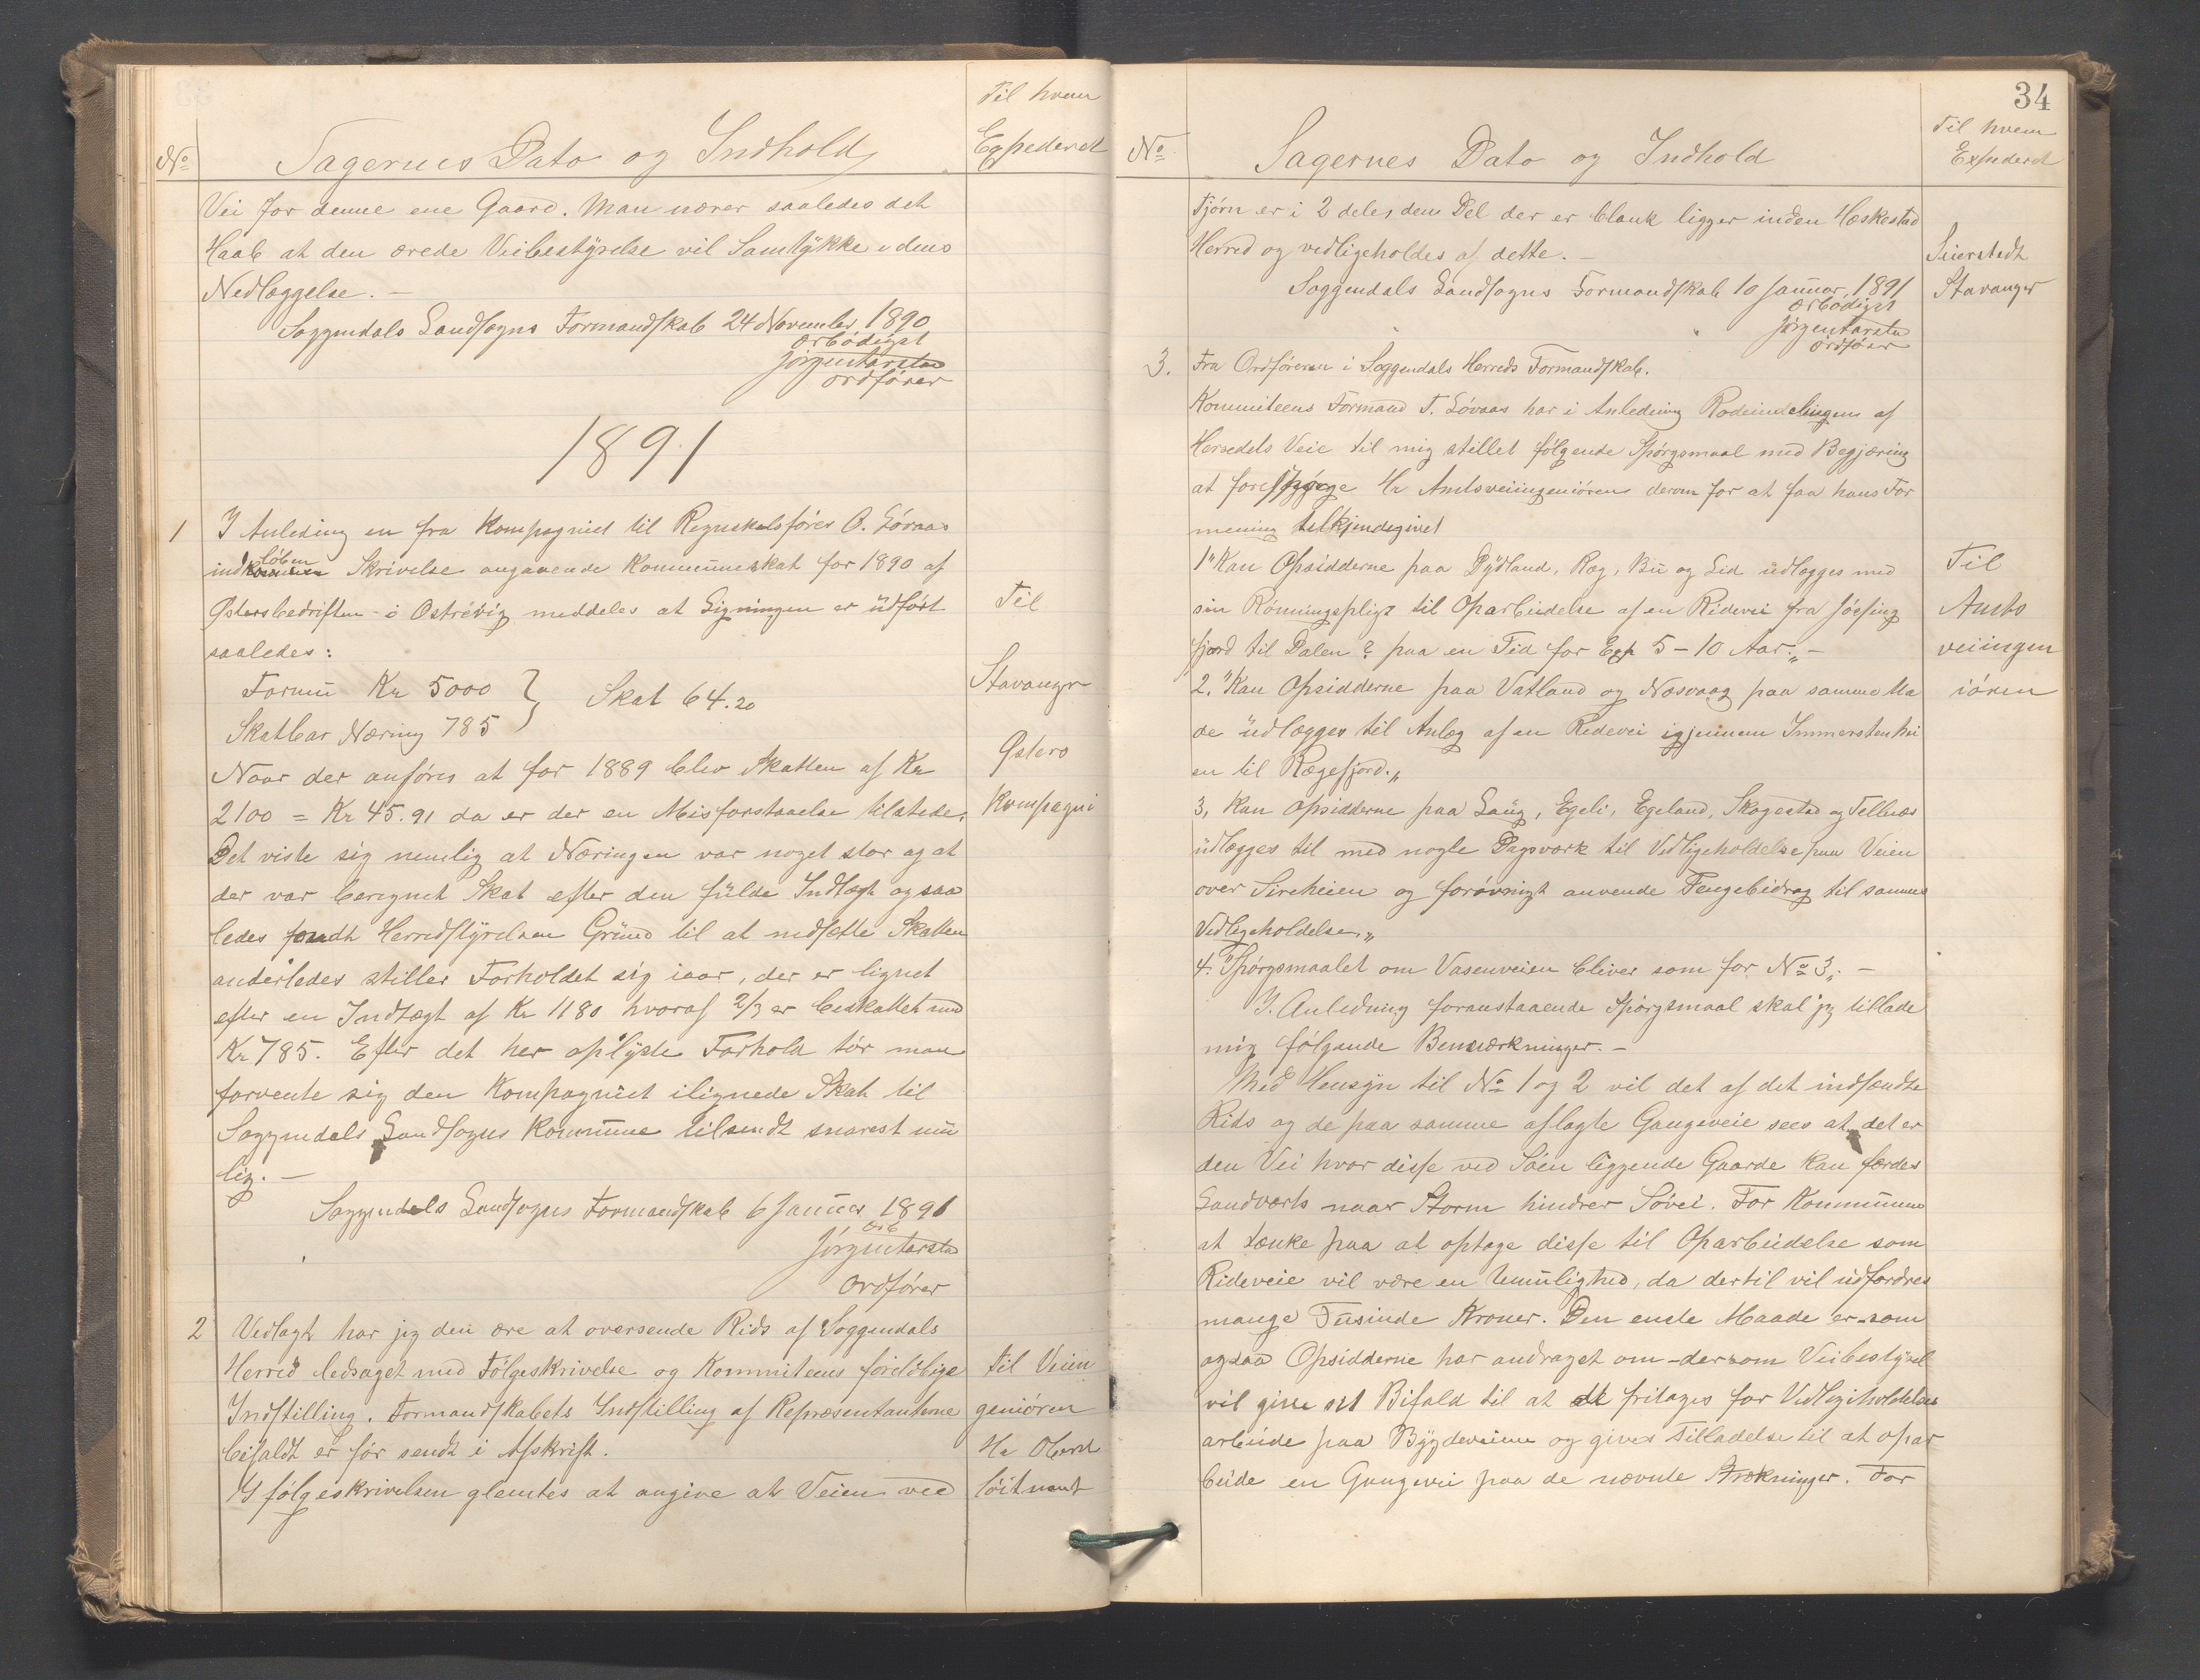 Til hvem
Expederet
No
Sagernes Dato og Indhold
Vei for denne ene Gaard. Man nærer saaledes det
Haab at den ærede Veibestyrelse vil Samtykke i dens
Nedlæggelse. —
Soggendals Landsogns Formandskab 24 November 1890
ærbødigst
Jørgen Aarstad
ordfører
1891
1
I Anleding en fra Kompagniet til Regnskabsfører O. Løvaas
indløben Skrivelse angaaende Kommuneskat for 1890 af
Østersbedriften i Ostrevig meddeles at Ligningen er udført
saaledes:
Formu Kr 5000 } Skat 64.20
Skatbar Næring 785
Naar der anføres at for 1889 blev Skatten af Kr
2100 = Kr 45.91 da er der en Misforstaaelse tilstede.
Det viste sig nemlig at Næringen var noget stor og at
der var beregnet Skat efter den fulde Indtægt og saa
ledes fandt Herredstyrelsen Grund til at nedsætte Skatten
anderledes stiller Forholdet sig iaar, der er lignet
efter en Indtægt af Kr 1180 hvoraf 2/3 er beskattet med
Kr 785. Efter det her oplyste Forhold tør man
forvente sig den Kompagniet ilignede Skat til
Soggendals Landsogns Kommune tilsendt snarest mu
lig. —
Soggendals Landsogns Formandskab 6 Januar 1891
ærb
Jørgen Aarstad
Ordfører
Til
Stavanger
Østers
Kompagni
2
Vedlagt har jeg den ære at oversende Rids af Soggendals
Herred ledsaget med Følgeskrivelse og Kommiteens foreløbige
Indstilling. Formandskabets Indstilling af Repræsentanterne
bifaldt er før sendt i Afskrift.
I følgeskrivelsen glemtes at angive at Veien ved
til Veiin
geniøren
Hr Oberst
løitnant
34
No
Sagernes Dato og Indhold
Til hvem
Expederet
Tjørn er i 2 dele, den Del der er blank ligger inden Heskestad
Herred og vedligeholdes af dette. —
Soggendals Landsogns Formandskab 10 Januar 1891
ærbødigst
Jørgen Aarstad
ordfører
Seierstedt
Stavanger
3.
Fra Ordføreren i Soggendals Herreds Formandskab.
Kommiteens Formand T. Løvaas har i Anledning Rodeindelingen af
Herredets Veie til mig stillet følgende Spørgsmaal med Begjæring
at forespørge Hr Amtsveiingeniøren derom for at faa hans For
mening tilkjendegivet
1" Kan Opsidderne paa Dydland, Røg, Bu og Lid udlægges med
sin Rønningspligt til Oparbeidelse af en Ridevei fra Jøssing
fjord til Dalen? paa en Tid for Exp 5 - 10 Aar." —
2." Kan Opsidderne paa Vatland og Nesvaag paa samme Ma
de udlægges til Anlæg af en Ridevei igjennem Immerstenhei
en til Rægefjord."
3, Kan Opsidderne paa Laug, Egeli, Egeland, Skogestad og Tellnæs
udlægges til med nogle Dagsværk til Vedligeholdelse paa Veien
over Sireheien og forøvrigt anvende Pengebidrag til sammes
Vedligeholdelse."
4." Spørgsmaalet om Vasenveien bliver som for No 3". —
I Anledning foranstaaende Spørgsmaal skal jeg tillade
mig følgende Bemærkninger. —
Med Hensyn til No 1 og 2 vil det af det indsendte
Rids og de paa samme aflagte Gangeveie sees at det er
den Vei hvor disse ved Søen liggende Gaarde kan færdes
Landværts naar Storm hindrer Søvei. For Kommunen
at tænke paa at optage disse til Oparbeidelse som
Rideveie vil være en Umulighed, da dertil vil udfordres
mange Tusinde Kroner. Den eneste Maade er som
ogsaa Opsidderne har andraget om - dersom Veibestyrel
vil give sit Bifald til at de fritages for Vedligeholdelses
arbeide paa Bygdeveiene og gives Tilladelse til at opar
beide en Gangevei paa de nævnte Strækninger. For
Til
Amts
veiingen
iøren